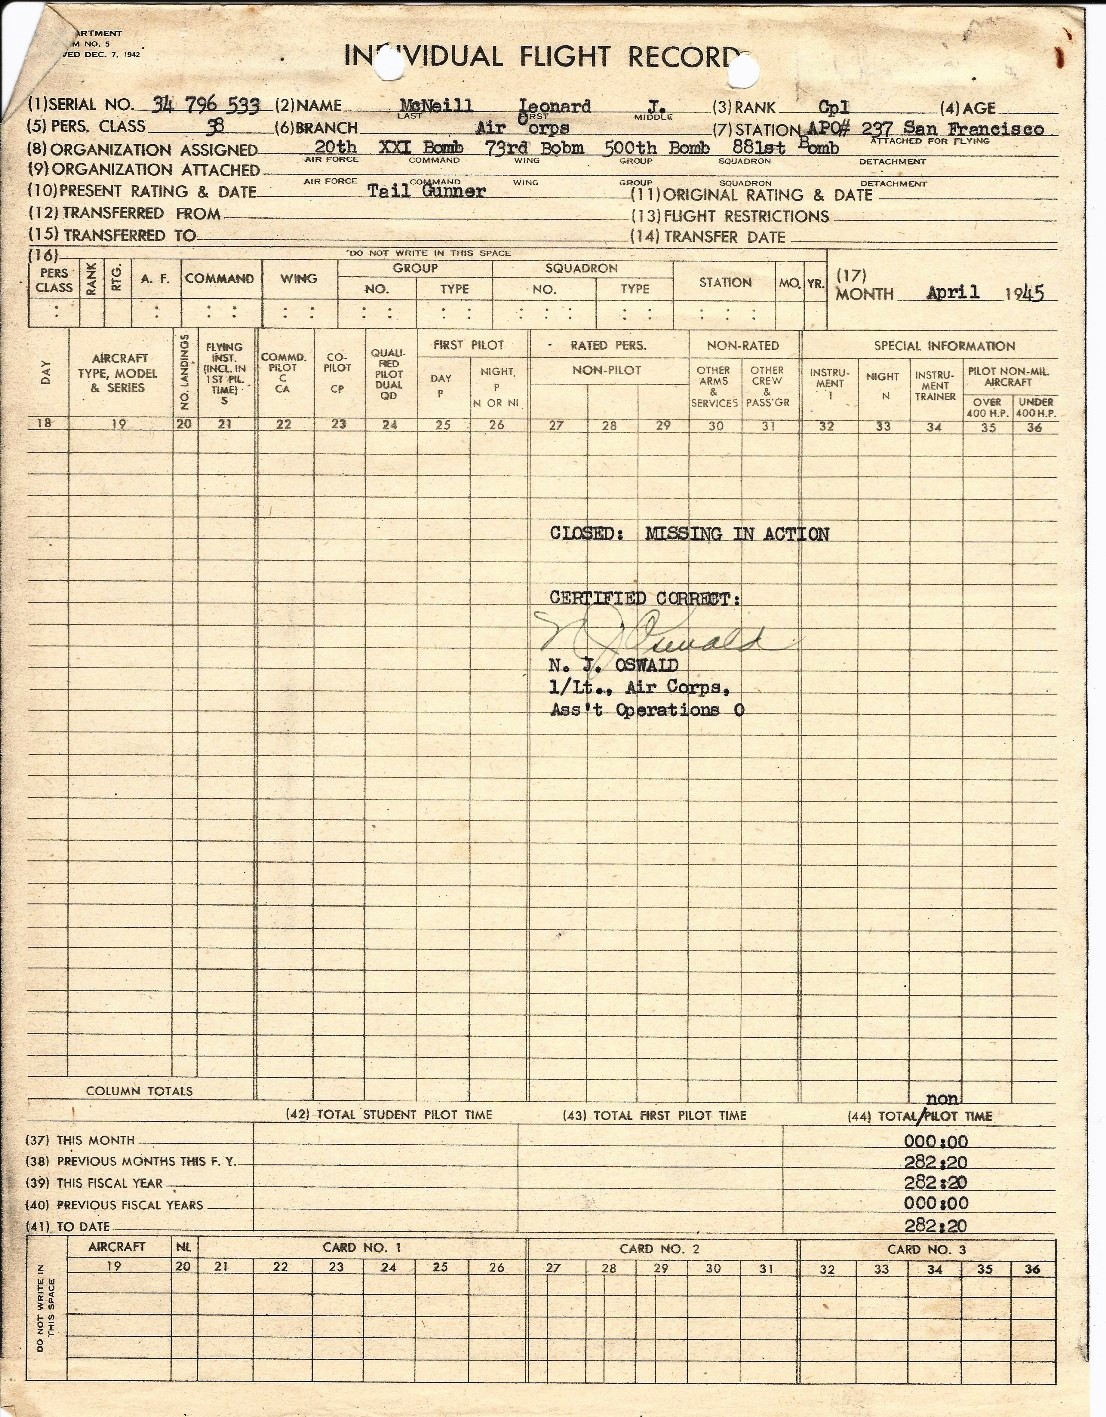 ARTMENT
M NO. 5
VED DEC. 7, 1942
INDIVIDUAL FLIGHT RECORD
(1) SERIAL NO. 34 796 533 (2) NAME McNeill Leonard J. (3) RANK Cpl (4) AGE
LAST FIRST MIDDLE
(5) PERS. CLASS 38 (6) BRANCH Air Corps (7) STATION APO# 237 San Francisco
(8) ORGANIZATION ASSIGNED 20th XXI Bomb 73rd Bobm 500th Bomb 881st Bomb ATTACHED FOR FLYING
AIR FORCE COMMAND WING GROUP SQUADRON DETACHMENT
(9) ORGANIZATION ATTACHED
AIR FORCE COMMAND WING GROUP SQUADRON DETACHMENT
(10) PRESENT RATING & DATE Tail Gunner (11) ORIGINAL RATING & DATE
(12) TRANSFERRED FROM (13) FLIGHT RESTRICTIONS
(15) TRANSFERRED TO (14) TRANSFER DATE
(16) *DO NOT WRITE IN THIS SPACE
PERS CLASS RANK RTG. A. F. COMMAND WING GROUP NO. TYPE SQUADRON NO. TYPE STATION MO. YR. (17) MONTH April 1945
DAY AIRCRAFT TYPE, MODEL & SERIES NO. LANDINGS FLYING INST. (INCL. IN 1ST PIL. TIME) S COMMD. PILOT C CA CO-PILOT CP QUALI-FIED PILOT DUAL QD FIRST PILOT DAY P NIGHT, P N OR NI RATED PERS. NON-PILOT NON-RATED OTHER ARMS & SERVICES OTHER CREW & PASS'GR SPECIAL INFORMATION INSTRU-MENT I NIGHT N INSTRU-MENT TRAINER PILOT NON-MIL. AIRCRAFT OVER 400 H.P. UNDER 400 H.P.
18 19 20 21 22 23 24 25 26 27 28 29 30 31 32 33 34 35 36
CLOSED: MISSING IN ACTION
CERTIFIED CORRECT:
N J Oswald
N. J. OSWALD
1/Lt., Air Corps,
Ass't Operations O
COLUMN TOTALS
non
(42) TOTAL STUDENT PILOT TIME (43) TOTAL FIRST PILOT TIME (44) TOTAL/PILOT TIME
(37) THIS MONTH 000:00
(38) PREVIOUS MONTHS THIS F. Y. 282:20
(39) THIS FISCAL YEAR 282:20
(40) PREVIOUS FISCAL YEARS 000:00
(41) TO DATE 282:20
DO NOT WRITE IN THIS SPACE
AIRCRAFT NL CARD NO. 1 CARD NO. 2 CARD NO. 3
19 20 21 22 23 24 25 26 27 28 29 30 31 32 33 34 35 36